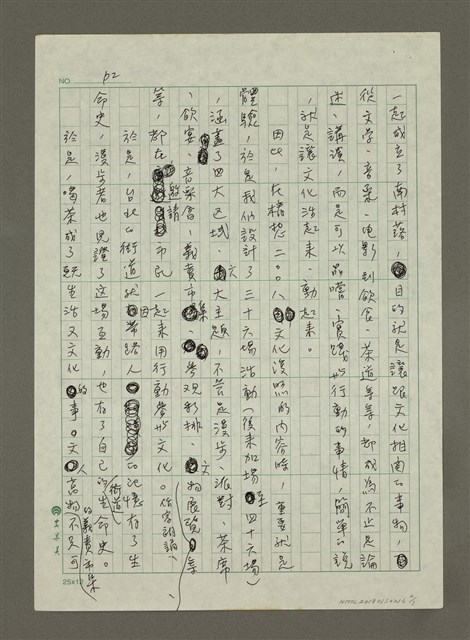 NO. p2
一起成立了南村落,目的就是讓跟文化相關的事物,
從文學、音樂、電影到飲食、茶道等等,都成為不止是論
述、講演,而是可以品嚐、實踐、行動的事情,簡單的說
,就是讓文化活起來、動起來。
因此,在構想二〇〇八文化漫步的內容時,重要就是
體驗,於是我們設計了三十六場活動(後來加場至四十六場)
,涵蓋了四大区域、六大主題,不管是漫步、派對、茶席
、飲宴、音樂會、義賣市集、參观彩排、文物展览、作家朗誦等
等,都在邀請市民一起來用行動參與文化。
於是,台北的街道就因帶路人的記憶有了生
命史,漫步者也見證了這場互動,也有了自己的街道生命史。
於是,喝茶成了既生活又文化的事。文人的義賣市集,高物不只可
25x12